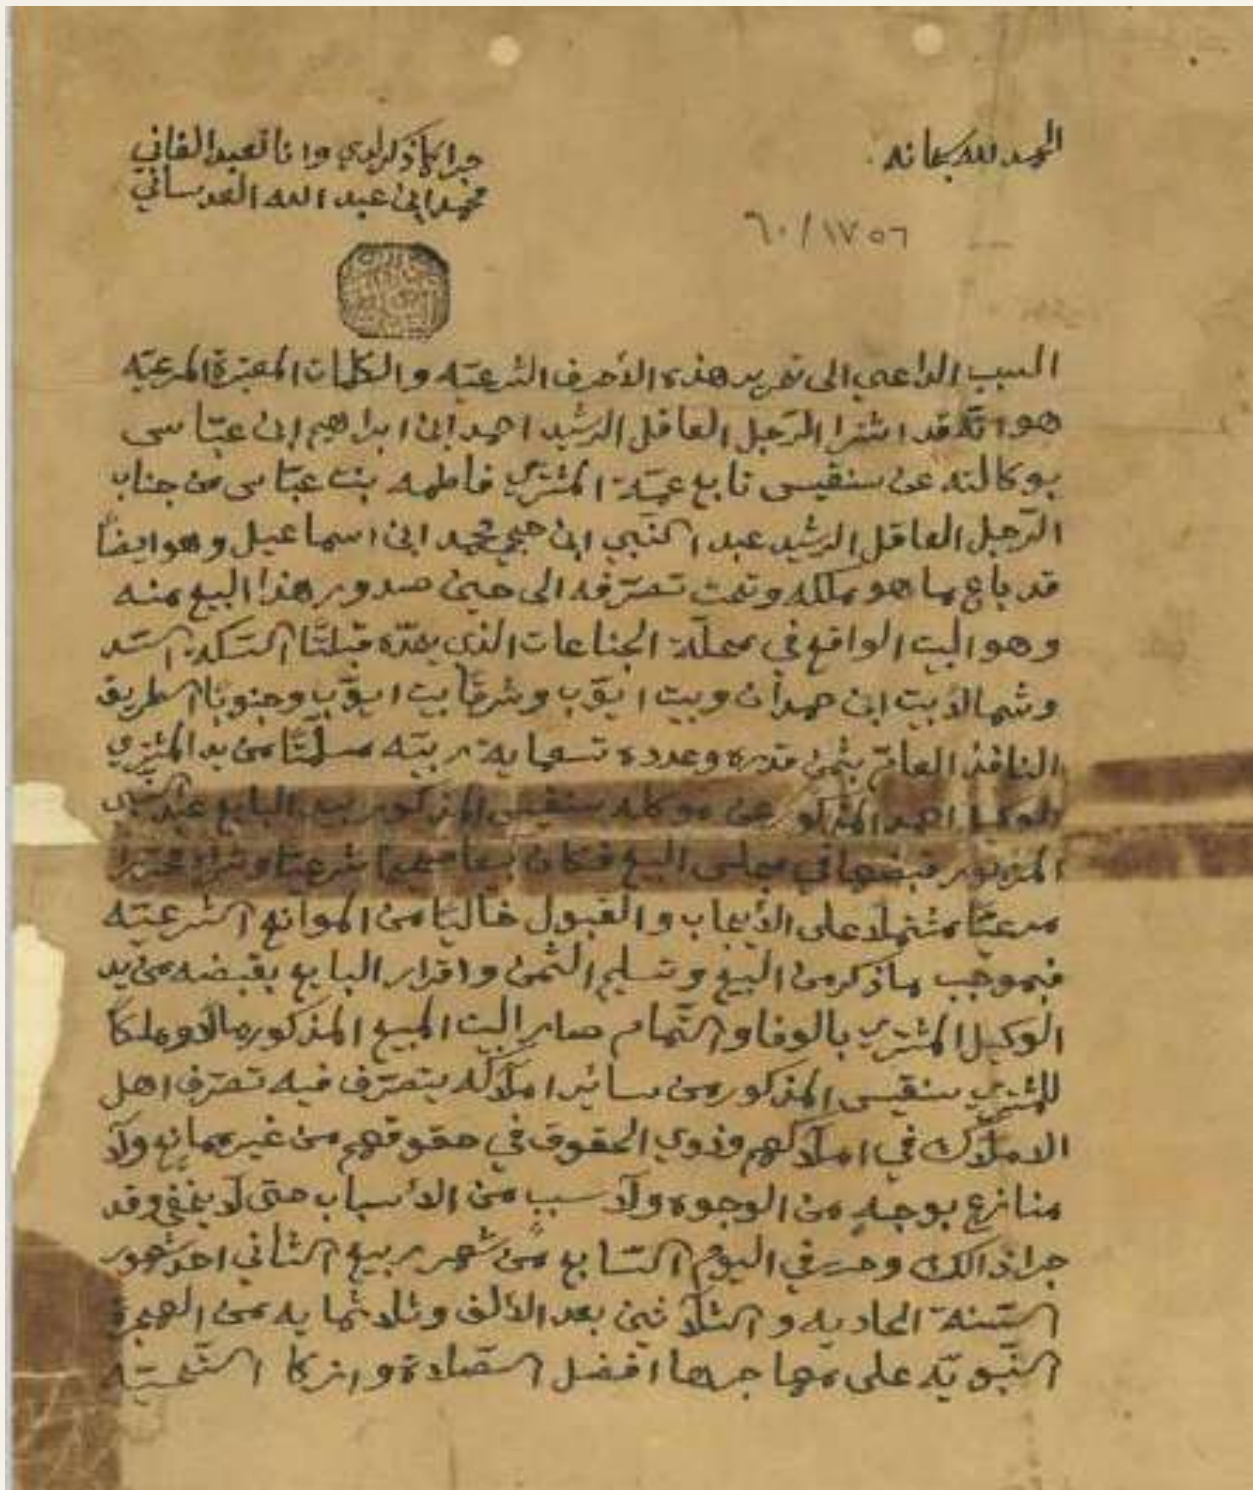 الحمد لله سبحانه
جرا كما ذكر لدي وانا العبد الفاني
محمد ابن عبد الله العدساني
٦٠/١٧٥٦
السبب الداعي الى تحرير هذه الأحرف الشرعيّه والكلمات المعتبرة المرعيّه
هو انّه قد اشترا الرّجل العاقل الرشيد احمد ابن ابراهيم ابن عبّاسي
بوكالته عن سنقيسى تابع عمّة المشتري فاطمه بنت عبّاسى من جناب
الرّجل العاقل الرشيد عبد النّبي ابن حجي محمد ابن اسماعيل وهو ايضاً
قد باع ما هو ملكه وتحت تصرّفه الى حين صدور هذا البيع منه
وهو البيت الواقع في محلّة الجناعات الذي يحدّه قبلتاً السّكة السّد
وشمالاً بيت ابن حمدان وبيت ايوّب وشرقاً بيت ايوّب وجنوباً الطريق
النافذ العامّ بثمن قدره وعدده تسعماية ربيّه مسلّمتاً من يد المشتري
الوكيل احمد المذكور عن موكله سنقيسى المذكور بيد البايع عبد النّبي
المزبور قبضها في مجلس البيع فكان بيعاً صحيحاً شرعيّاً وشراءً محرّرا
مرعيّاً مشتملاً على الأيجاب والقبول خالياً من الموانع الشّرعيّه
فبموجب ما ذكر من البيع وتسليم الثّمن واقرار البايع بقبضه من يد
الوكيل المشتري بالوفا والتّمام صار البيت المبيع المذكور مالاً وملكاً
للمشتري سنقيسى المذكور من سائر املاكه يتصرّف فيه تصرّف اهل
الاملاك في املاكهم وذوي الحقوق في حقوقهم من غير ممانع ولا
منازع بوجهٍ من الوجوه ولا سبب من الأسباب حتى لا يخفى وقد
جرا ذالك وحرر في اليوم السّابع من شهر ربيع الثاني احد شهور
السّنة الحاديه والثّلاثين بعد الألف وثلاثمايه من الهجرة
النّبويّه على مهاجرها افضل الصّلاة وازكا التّحيّه